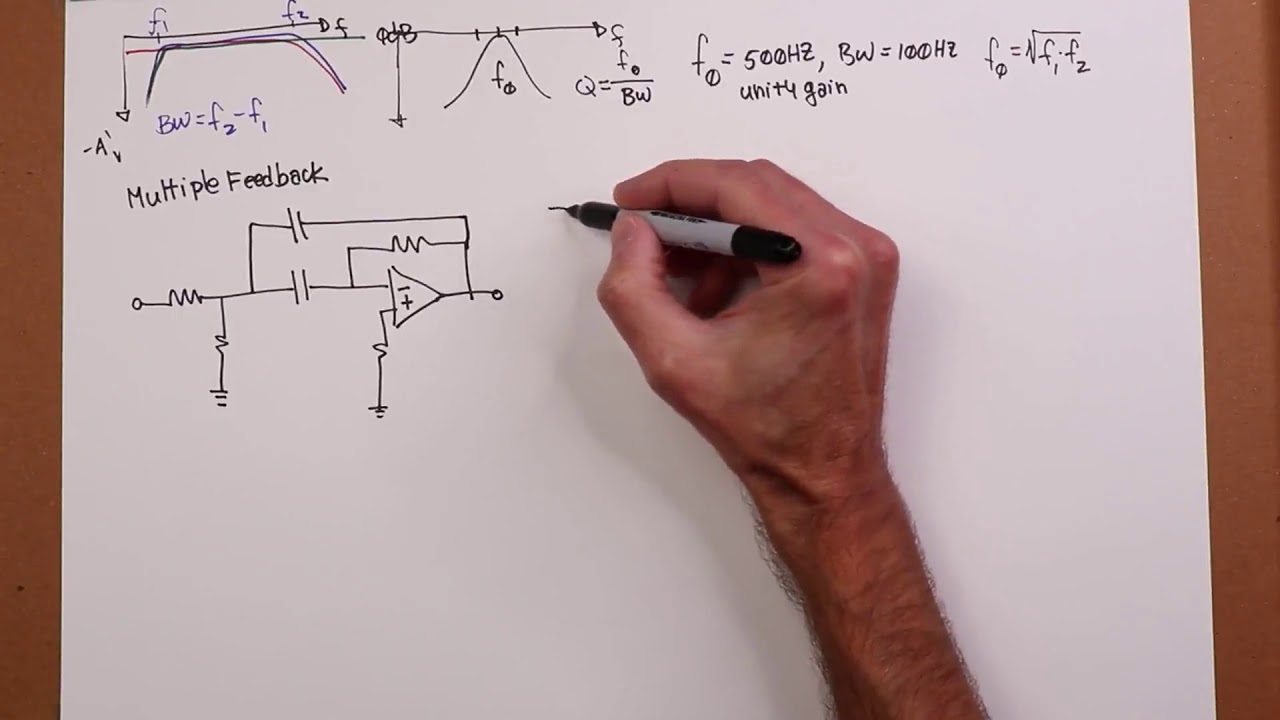 f₁ f₂ f
-A'ᵥ
BW=f₂-f₁
0dB f
f₀
Q=f₀/BW
f₀=500HZ, BW=100HZ f₀=√f₁·f₂
unity gain
Multiple Feedback
-
+